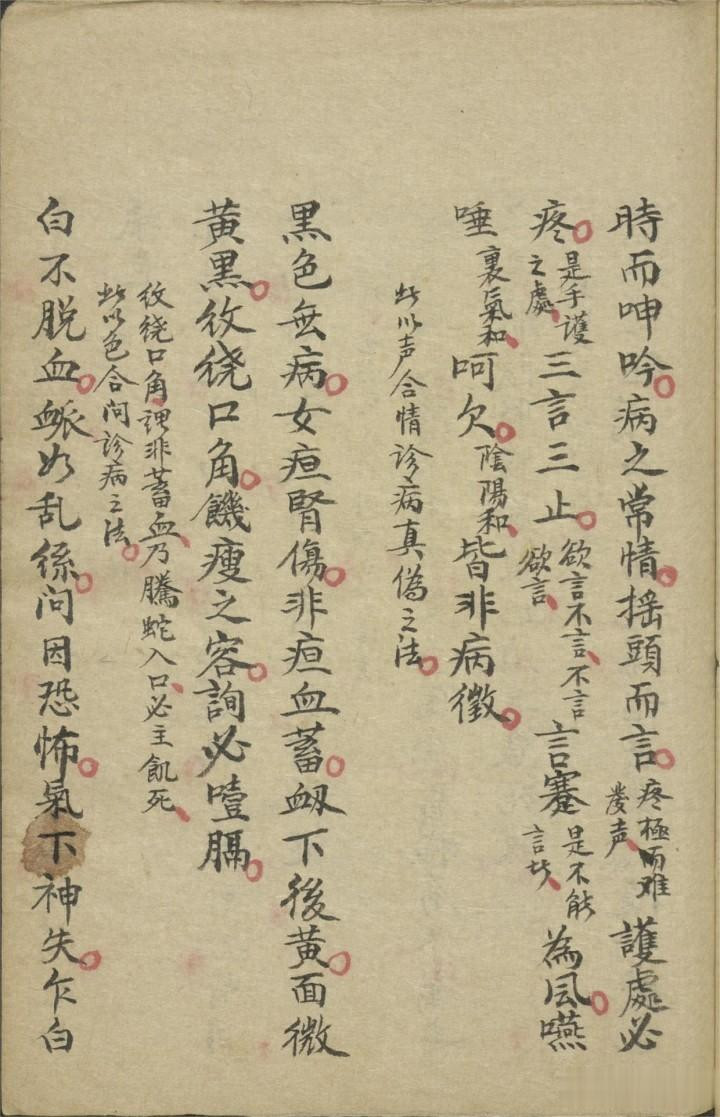 時而呻吟。病之常情。搖頭而言。疼極而难發声、護處必
疼。是手護之處、三言三止。欲言不言、不言欲言、言蹇是不能言者、為风。嚥
唾裏氣和、呵欠。陰陽和、皆非病徵。
此以声合情診病真偽之法。
黑色無病。女疸腎傷。非疸血蓄。衄下後黄。面微
黄黑。紋繞口角。饑瘦之容。詢必噎膈。
紋繞口角、謂非蓄血、乃騰蛇入口、必主飢死、
此以色合问診病之法。
白不脱血。脈如乱絲。问因恐怖。氣下神失。乍白